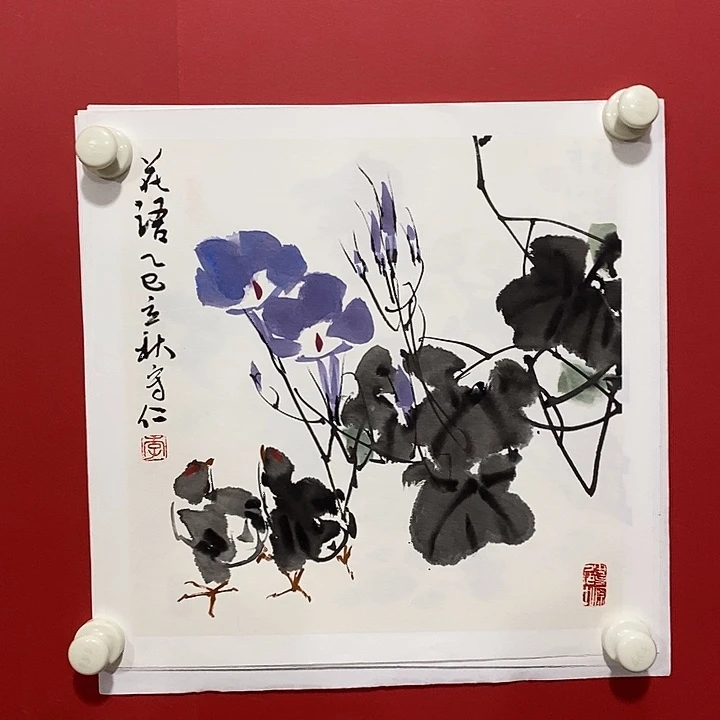 花語乙巳立秋守仁